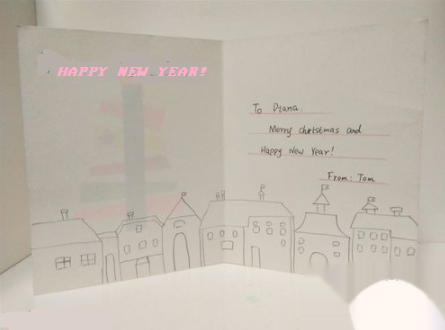 HAPPY NEW YEAR!
To Diana.
Merry christmas and
Happy New Year!
From: Tom